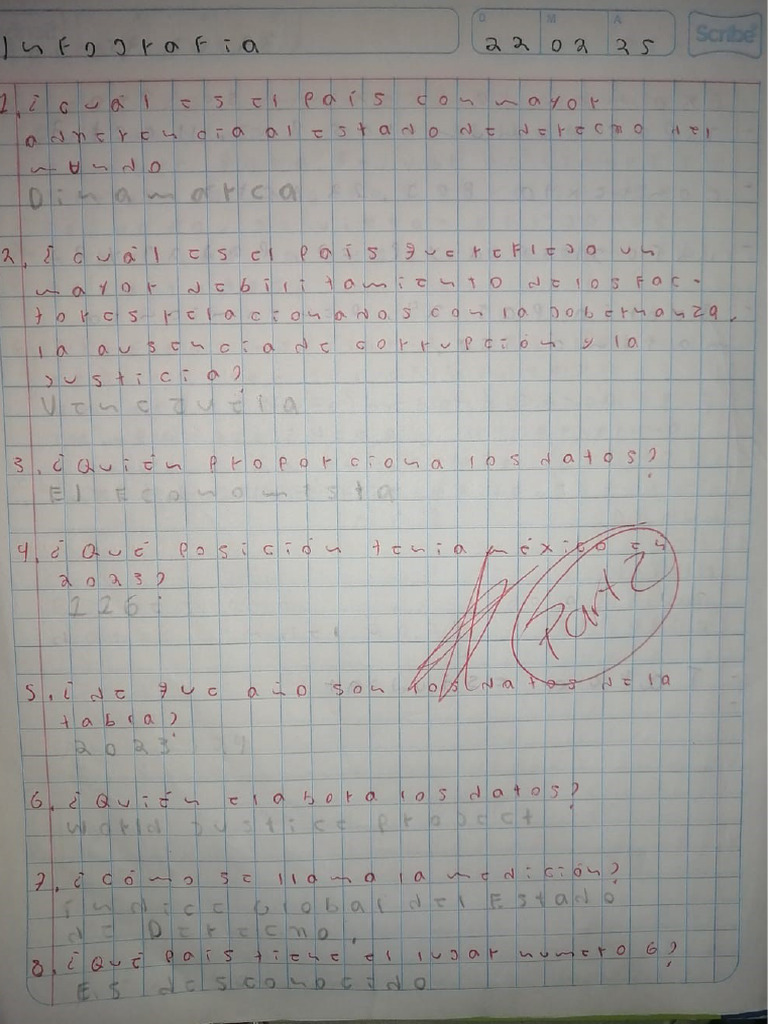 Infografia
D M A
22 02 25
Scribe
1. ¿cuál es el país con mayor
adherencia al estado de derecho del
mundo
Dinamarca
2. ¿cuál es el país que refleja un
mayor debilitamiento de los fac-
tores relacionados con la gobernanza,
la ausencia de corrupción y la
justicia?
Venezuela
3. ¿Quién proporciona los datos?
El Economista
4. ¿Qué posición tenia méxico en
2023?
Part 2
5. ¿de que año son los datos de la
tabla?
2023
6. ¿Quién elabora los datos?
World justice project
7. ¿cómo se llama la medición?
índice global del Estado
de Derecho.
8. ¿Qué país tiene el lugar numero 6?
Es desconocido